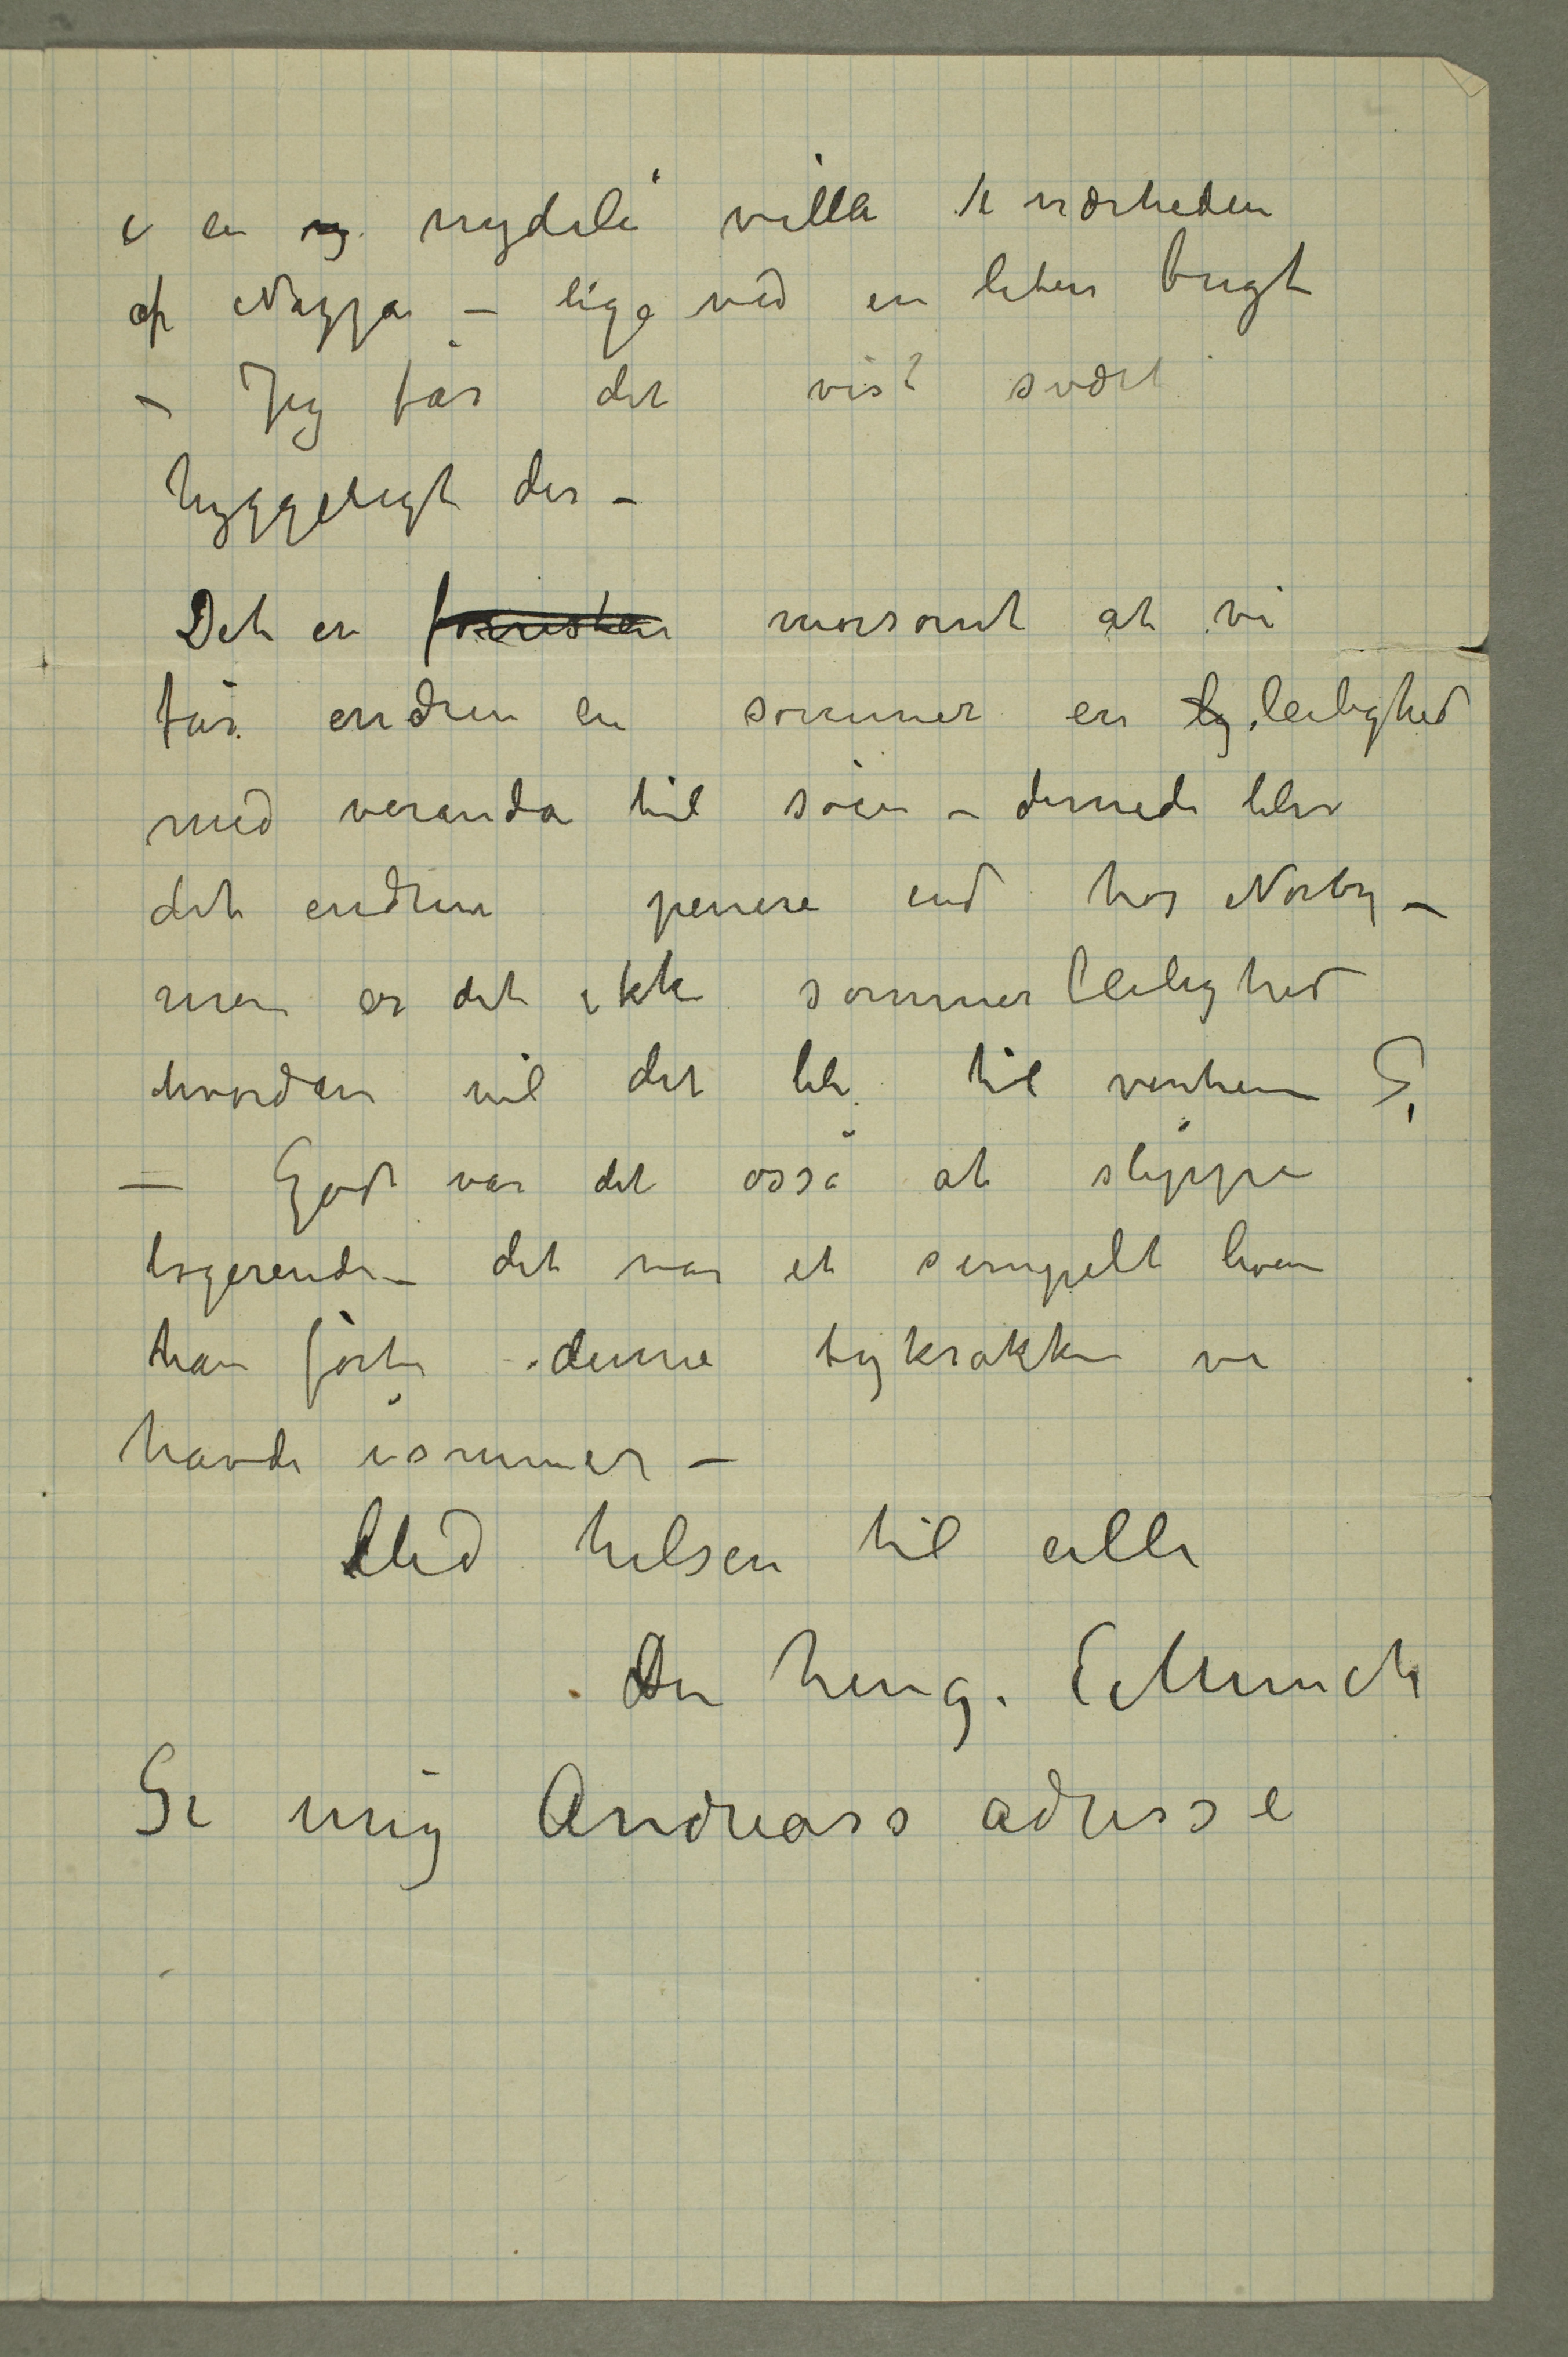 i en ny nydeli villa i nærheden
af Nizza – lige ved en liten bugt
– Jeg får det vist svært
hyggeligt der –
Det er forresten morsomt at vi
får endnu en sommer en ly leilighed
med veranda til søen – dernede blir
det endnu penere end hos Norby –
men er det ikke sommerleilighed
hvordan vil det bli til vinteren?
– Godt var det også at slippe
logerende – det var et simpelt liv
han førte denne tykrakken vi
havde isommer –
Med hilsen til alle
Din heng. E Munch
Gi mig Andreas's adresse